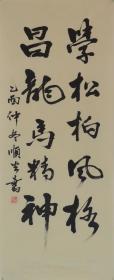 學松柏風格
昌龍馬精神
乙酉仲冬順生書